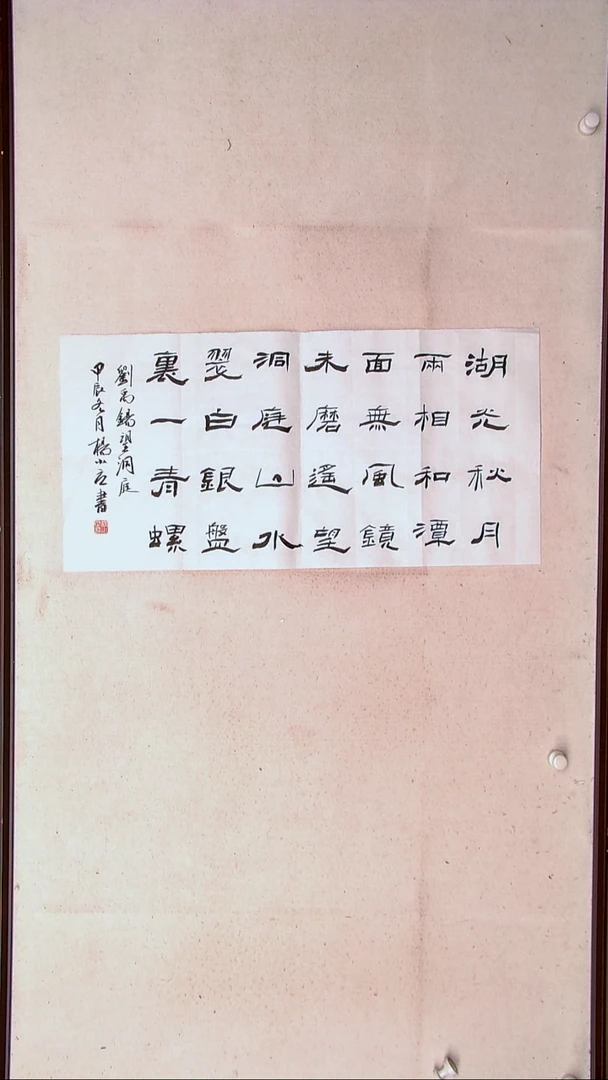 湖光秋月
兩相和潭
面無風鏡
未磨遙望
洞庭山水
翠白銀盤
裏一青螺
劉禹錫望洞庭
甲辰冬月楊小書